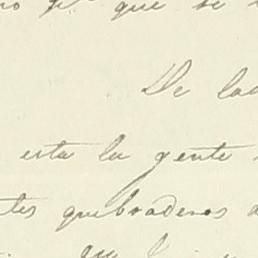 que se
De la
esta la gente
tes quebraderos